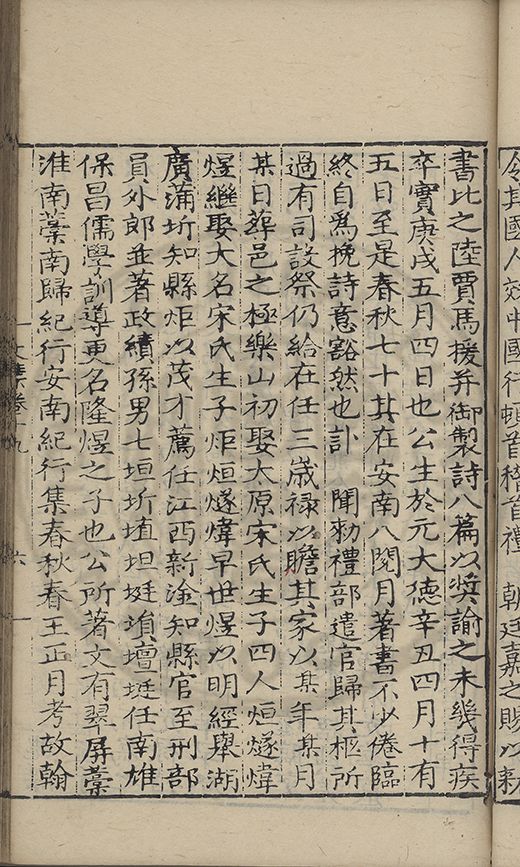 令其國人效中國行頓首稽首禮　朝廷嘉之賜以新
書比之陸賈馬援并御製詩八篇以奬諭之未幾得疾
卒實庚戌五月四日也公生於元大德辛丑四月十有
五日至是春秋七十其在安南八閱月著書不少倦臨
終自爲挽詩意豁然也訃　聞勑禮部遣官歸其柩所
過有司設祭仍給在任三歲禄以贍其家以某年某月
某日葬邑之極樂山初娶太原宋氏生子四人烜燧煒
煜繼娶大名宋氏生子炬烜燧煒早世煜以明經舉湖
廣蒲圻知縣炬以茂才薦任江西新淦知縣官至刑部
員外郎並著政績孫男七垣圻埴坦埏塤壇埏任南雄
保昌儒學訓導更名隆煜之子也公所著文有翠屏藁
淮南藁南歸紀行安南紀行集春秋春王正月考故翰
文集卷十九
六